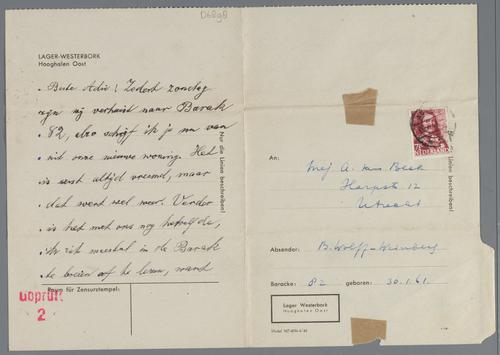 D6898
LAGER-WESTERBORK
Hooghalen Oost
Beste Adie! Zedert zondag
zijn wij verhuisd naar Barak
82, dus schrijf ik je nu van
uit onze nieuwe woning. Het
is eerst altijd vreemd, maar
dat went wel weer. Verder
is het met ons nog hetzelfde,
Ik zit meestal in de Barak
te lezen of te leren, want
Nur die Linien beschreiben!
Raum für Zensurstempel:
Geprüft
2
NEDERLAND
An:
Mej A. van Beek
12
Utrecht
Linien beschreiben!
Absender:
B. Wolff-
Baracke: 82 geboren: 30.1.61.
Lager Westerbork
Hooghalen Oost